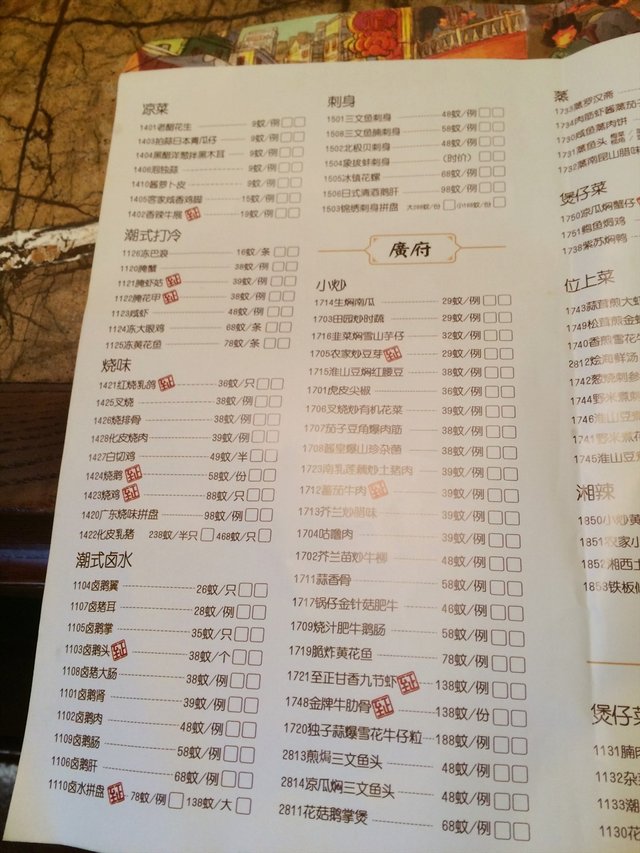 凉菜
1401老醋花生 9蚊/例
1403拍蒜日本青瓜仔 9蚊/例
1404黑醋洋葱拌黑木耳 9蚊/例
1406泡独蒜 9蚊/例
1410酱萝卜皮 9蚊/例
1405客家咸香鸡脚 15蚊/例
1402香辣牛展 19蚊/例
潮式打冷
1126冻巴浪 16蚊/条
1120腌蟹 38蚊/例
1121腌虾姑 39蚊/例
1122腌花甲 38蚊/例
1123咸虾 48蚊/例
1124冻大眼鸡 68蚊/条
1125冻黄花鱼 78蚊/条
烧味
1421红烧乳鸽 36蚊/只
1425叉烧 38蚊/例
1426烧排骨 38蚊/例
1428化皮烧肉 39蚊/例
1427白切鸡 49蚊/半
1424烧鹅 58蚊/份
1423烧鸡 88蚊/只
1420广东烧味拼盘 98蚊/例
1422化皮乳猪 238蚊/半只 468蚊/只
潮式卤水
1104卤鹅翼 26蚊/只
1107卤猪耳 28蚊/例
1105卤鹅掌 35蚊/只
1103卤鹅头 38蚊/个
1108卤猪大肠 38蚊/例
1101卤鹅肾 39蚊/例
1102卤鹅肉 48蚊/例
1109卤鹅肠 58蚊/例
1106卤鹅肝 68蚊/例
1110卤水拼盘 78蚊/例 138蚊/大
刺身
1501三文鱼刺身 48蚊/例
1508三文鱼腩刺身 58蚊/例
1502北极贝刺身 48蚊/例
1504象拔蚌刺身 (时价)
1505冰镇花螺 68蚊/例
1506日式清酒鹅肝 98蚊/例
1503锦绣刺身拼盘
廣府
小炒
1714生焖南瓜 29蚊/例
1703田园炒时蔬 29蚊/例
1716韭菜焖雪山芋仔 32蚊/例
1705农家炒豆芽 29蚊/例
1715淮山豆焖红腰豆 38蚊/例
1701虎皮尖椒 36蚊/例
1706叉烧炒有机花菜 39蚊/例
1707茄子豆角爆肉筋 38蚊/例
1708酱皇爆山珍杂菌 38蚊/例
1723南乳莲藕炒土猪肉 39蚊/例
1712蕃茄牛肉 39蚊/例
1713芥兰炒腊味 39蚊/例
1704咕噜肉 39蚊/例
1702芥兰苗炒牛柳 48蚊/例
1711蒜香骨 58蚊/例
1717锅仔金针菇肥牛 46蚊/例
1709烧汁肥牛鹅肠 58蚊/例
1719脆炸黄花鱼 78蚊/例
1721至正甘香九节虾 138蚊/例
1748金牌牛肋骨 138蚊/份
1720独子蒜爆雪花牛仔粒 188蚊/例
2813煎焗三文鱼头 48蚊/例
2814凉瓜焖三文鱼头 48蚊/例
2811花菇鹅掌煲 68蚊/例
蒸
1733蒸罗汉斋
1734肉筋虾酱蒸茄
1730咸鱼蒸肉饼
1731蒸鱼头
1732蒸南昆山腊味
煲仔菜
1750凉瓜焖蟹仔
1751鲍鱼焗鸡
1738紫苏焖鸭
位上菜
1743蒜茸煎大虾
1749松茸煎金
1740香煎雪花牛
2812烩海鲜汤
1742葱烧刺参
1744野米煮刺
1746淮山豆
1741野米煮花
1745淮山豆
湘辣
1850小炒黄
1851农家小
1852湘西土
1853铁板
煲仔菜
1131腩肉
1132杂
1133潮
1130花